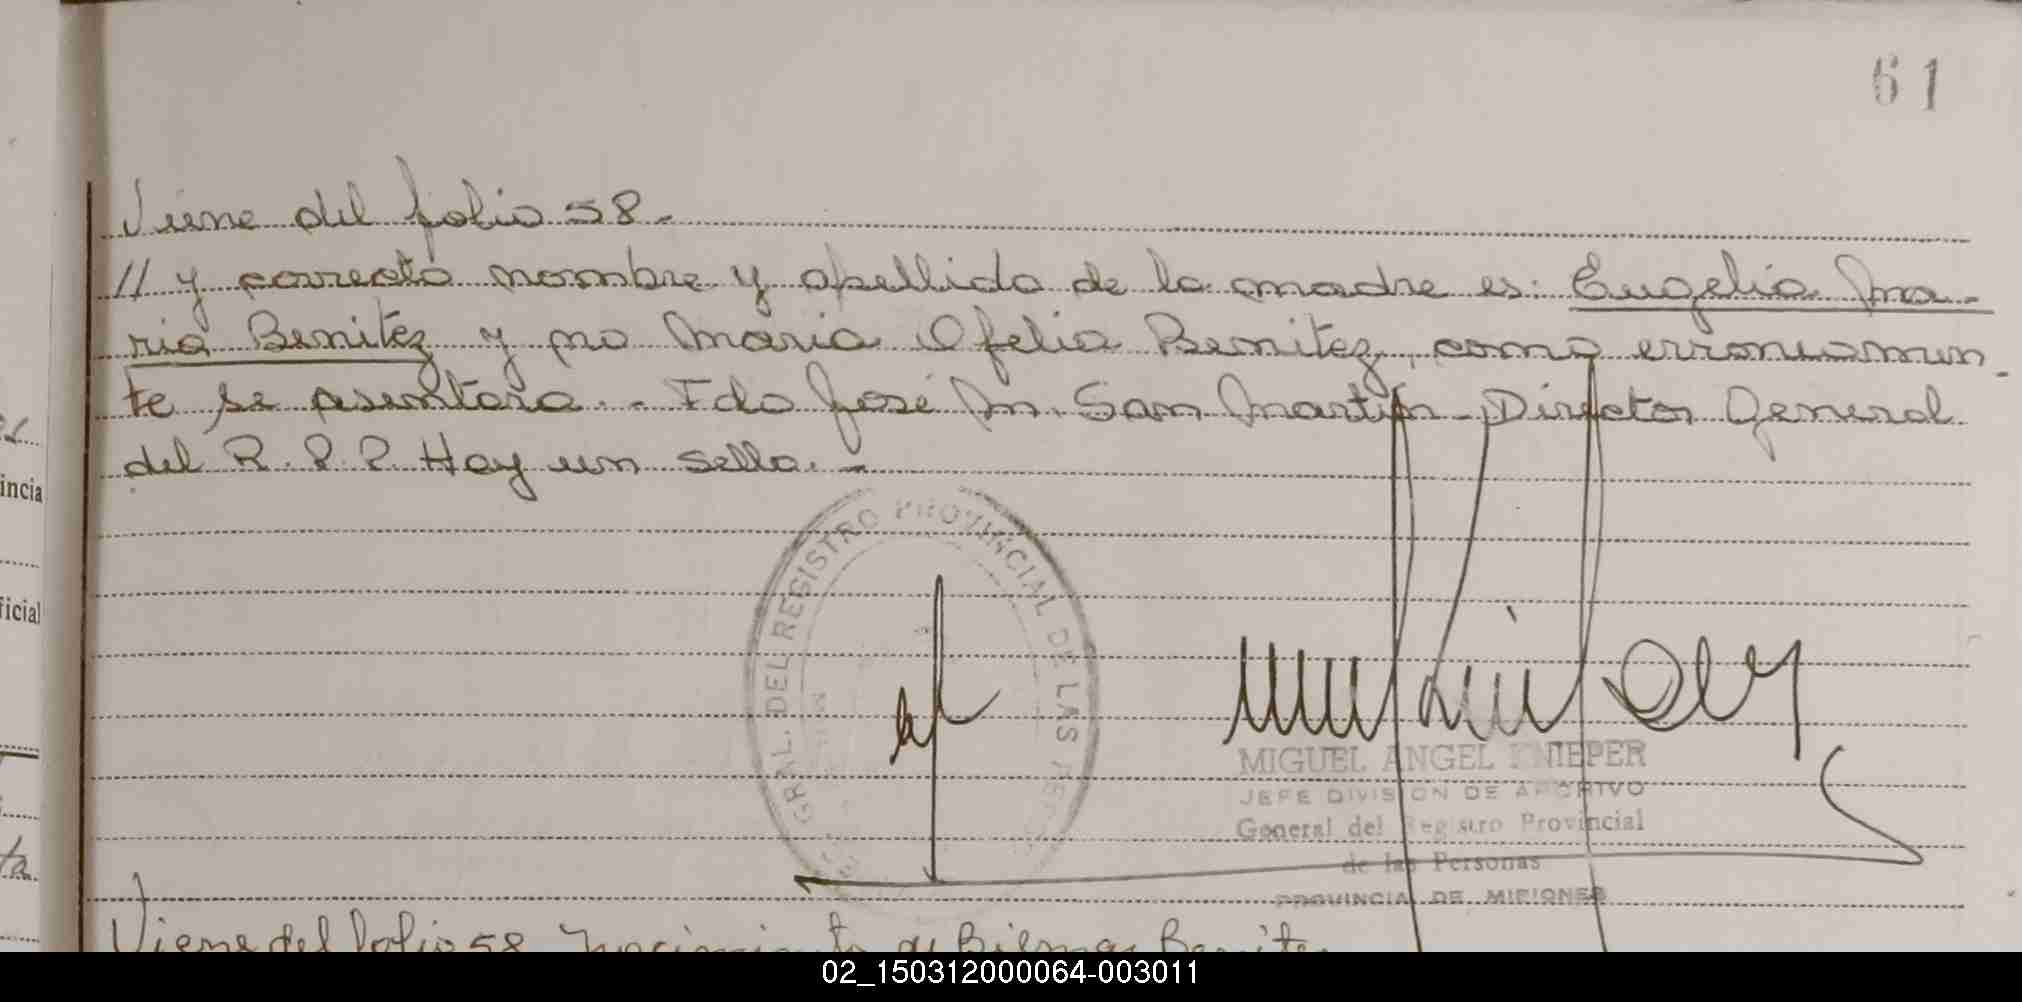 61
Viene del folio 58.-
// y correcto nombre y apellido de la madre es: Eugelia Ma-
ria Benitez y no Maria Ofelia Benitez, como erroneamen-
te se asentara.- Fdo José M. San Martin - Director General
del R.P.P. Hay un sello.-
GRAL. DEL REGISTRO PROVINCIAL DE LAS
MIGUEL ANGEL KNIEPER
JEFE DIVISION DE ARCHIVO
General del Registro Provincial
de las Personas
PROVINCIA DE MISIONES
Viene del folio 58 Nacimiento de Benite
incia
ficial
ta.
02_150312000064-003011